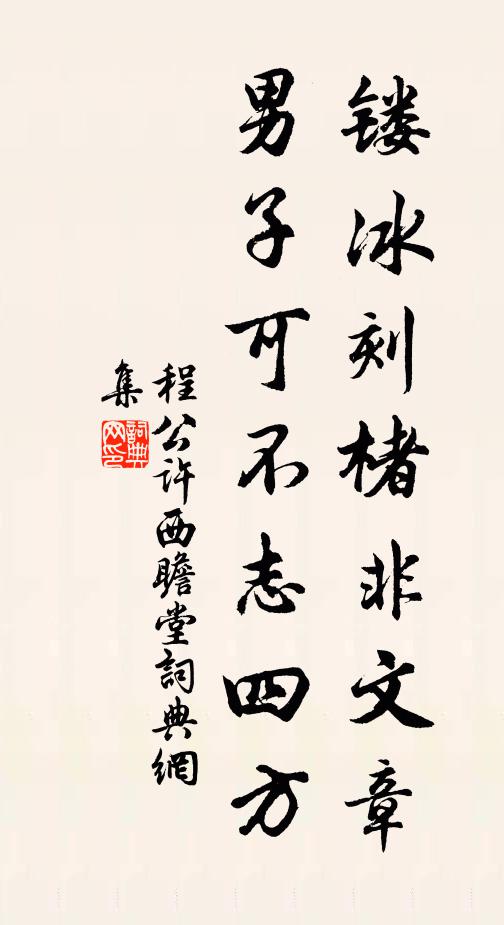 镂冰刻楮非文章
男子可不志四方
程公许西瞻堂詞典網
集
詞典网印